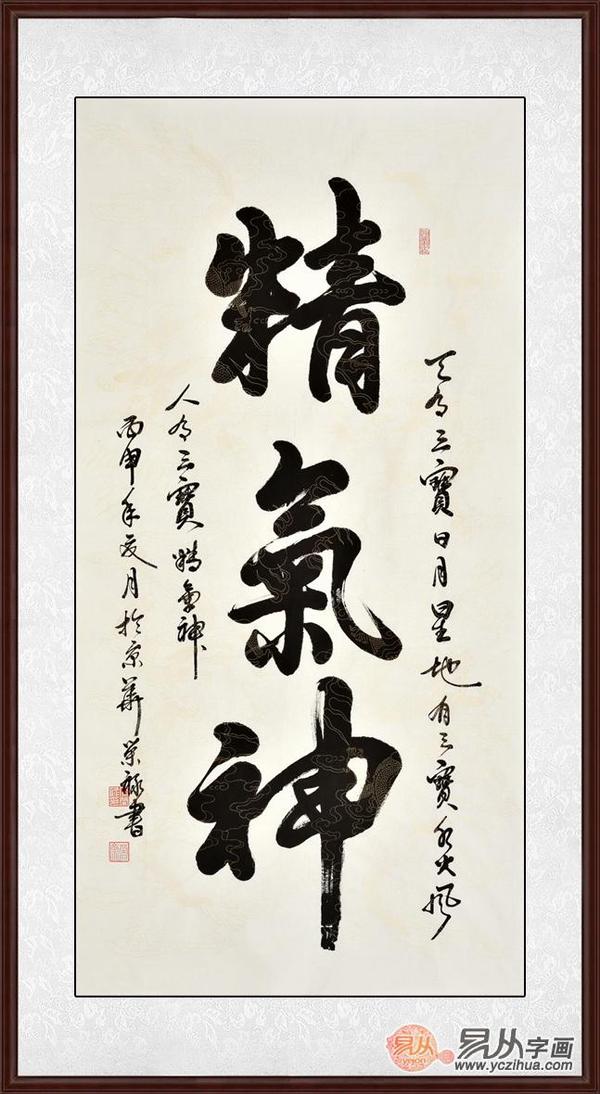 精氣神
天有三寶日月星地有三寶水火風
人有三寶精氣神
丙申年夏月於京華荣禄書
易从
yejon
易从字画
www.yczihua.com